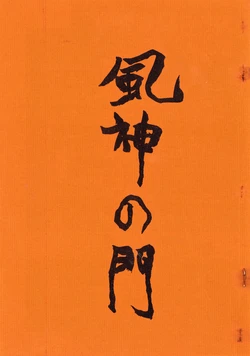 風神の門